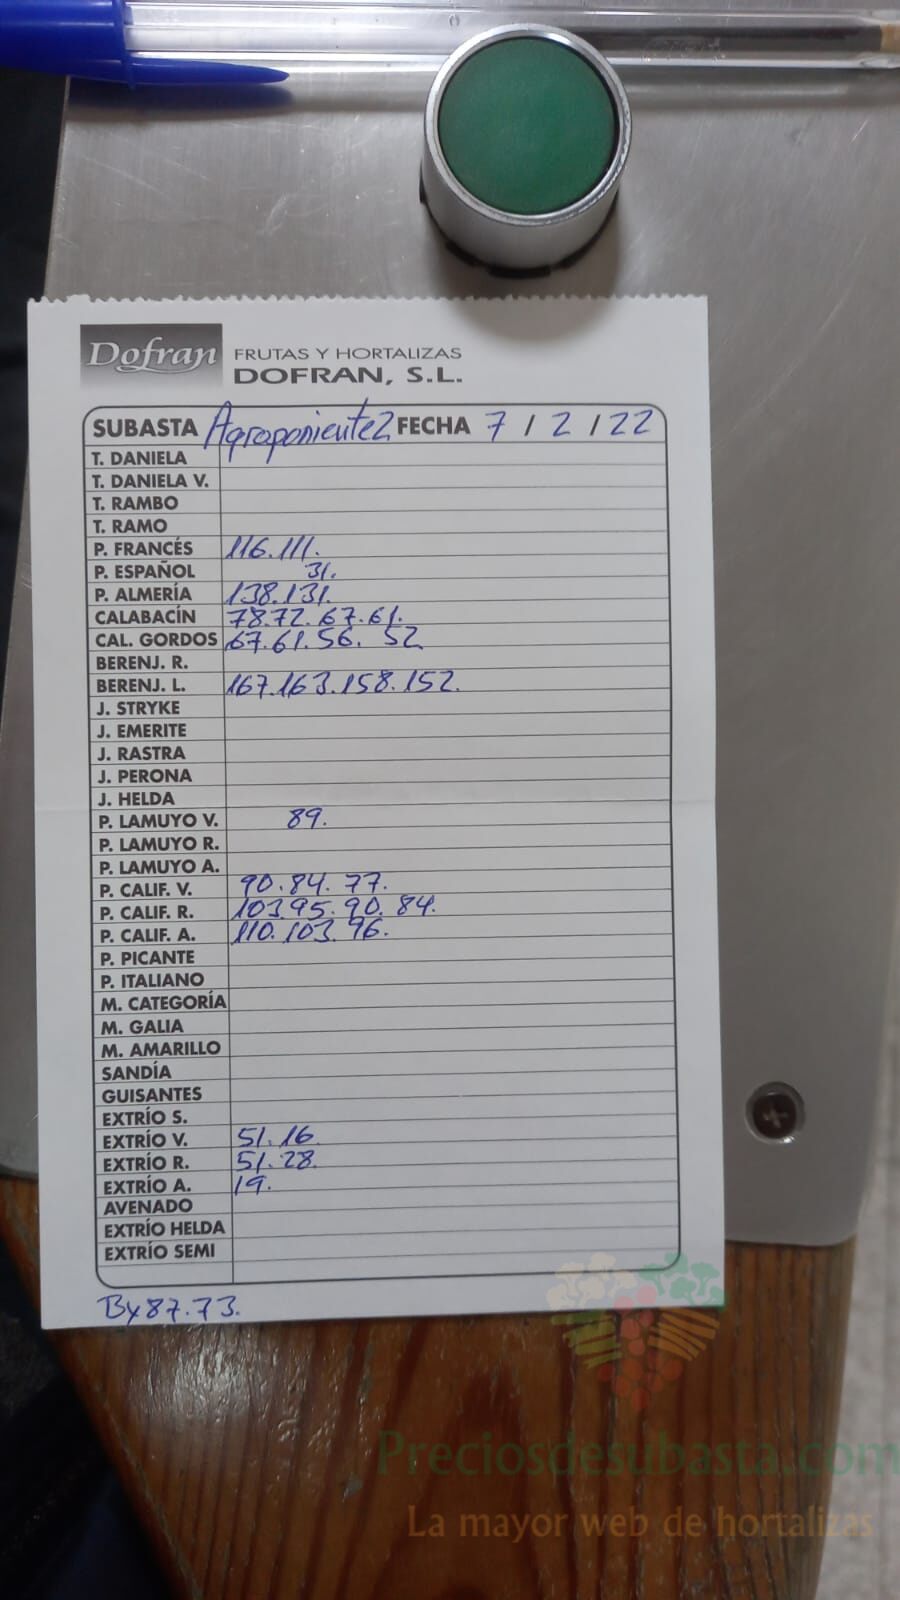 Dofran FRUTAS Y HORTALIZAS
DOFRAN, S.L.
SUBASTA Agroponiente2 FECHA 7 / 2 / 22
T. DANIELA
T. DANIELA V.
T. RAMBO
T. RAMO
P. FRANCÉS 116.111.
P. ESPAÑOL 31.
P. ALMERÍA 138.131.
CALABACÍN 78.72.67.61.
CAL. GORDOS 67.61.56. 52
BERENJ. R.
BERENJ. L. 167.163.158.152.
J. STRYKE
J. EMERITE
J. RASTRA
J. PERONA
J. HELDA
P. LAMUYO V. 89.
P. LAMUYO R.
P. LAMUYO A.
P. CALIF. V. 90.84.77.
P. CALIF. R. 103.95.90.84.
P. CALIF. A. 110.103.96.
P. PICANTE
P. ITALIANO
M. CATEGORÍA
M. GALIA
M. AMARILLO
SANDÍA
GUISANTES
EXTRÍO S.
EXTRÍO V. 51.16
EXTRÍO R. 51.28.
EXTRÍO A. 19.
AVENADO
EXTRÍO HELDA
EXTRÍO SEMI
By 87.73.
Preciosdesubasta.com
La mayor web de hortalizas